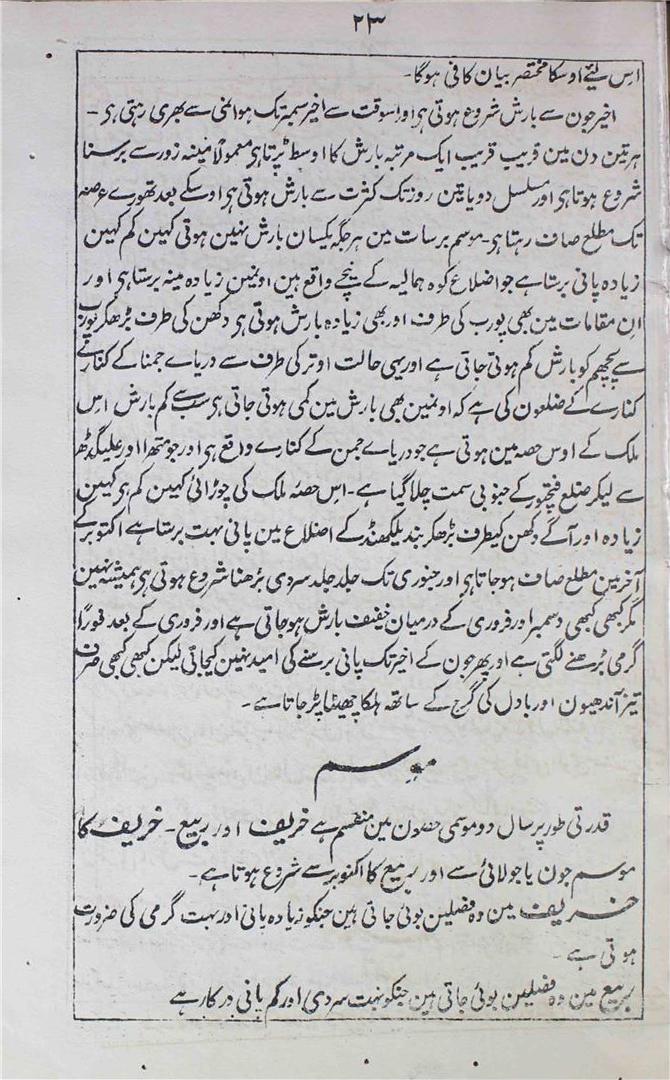 ۲۳
اس لیئے اوسکا مختصر بیان کافی ہوگا۔
اخیر جون سے بارش شروع ہوتی ہی اور اسوقت سے اخیر سمبتر تک ہوا نمی سے بھری رہتی ہی ۔
ہر تین دن مین قریب قریب ایک مرتبہ بارش کا اوسط پڑتا ہی معمولاً مینہ زور سے برسنا
شروع ہوتا ہی اور مسلسل دو یا تین روز تک کثرت سے بارش ہوتی ہی اوسکے بعد تھورے عرصہ
تک مطلع صاف رہتا ہی۔ موسم برسات مین ہر جگہ یکسان بارش نہین ہوتی کہین کم کہین
زیادہ پانی برستا ہے جو اضلاع کوہ ہمالیہ کے نیچے واقع ہین اونمین زیادہ مینہ برستا ہی اور
ان مقامات مین بھی پورب کی طرف اور بھی زیادہ بارش ہوتی ہی دکھن کی طرف بڑھکر پورب
سے پچھم کو بارش کم ہوتی جاتی ہے اور یہی حالت اوتر کی طرف سے دریاے جمنا کے کنارے
کنارے کے ضلعون کی ہے کہ اونمین بھی بارش مین کمی ہوتی جاتی ہی سب سے کم بارش اس
ملک کے اوس حصہ مین ہوتی ہے جو دریاے جمن کے کنارے واقع ہی اور جو متھرا اور علیگڈھ
سے لیکر ضلع فتحپور کے جنوبی سمت چلا گیا ہے ۔ اس حصہ ملک کی چوڑائی کہین کم ہی کہین
زیادہ اور آگے دکھن کیطرف بڑھکر بندیلکھنڈ کے اضلاع مین پانی بہت برستا ہے اکتوبر کے
آخر مین مطلع صاف ہو جاتا ہی اور جنوری تک جلد جلد سردی بڑھنا شروع ہوتی ہی ہمیشہ نہین
مگر کبھی کبھی دسمبر اور فروری کے درمیان خفیف بارش ہو جاتی ہے اور فروری کے بعد فوراً
گرمی بڑھنے لگتی ہے اور پھر جون کے اخیر تک پانی برسنے کی امید نہین کیجاتی لیکن کبھی کبھی صرف
تیز آندھیون اور بادل کی گرج کے ساتھ ہلکا چھینٹا پڑ جاتا ہے ۔
موسم
قدرتی طور پر سال دو موسمی حصون مین منقسم ہے خریف اور ربیع ۔ خریف کا
موسم جون یا جولائی سے اور ربیع کا اکتوبر سے شروع ہوتا ہے ۔
خریف مین وہ فصلین بوئی جاتی ہین جنکو زیادہ پانی اور بہت گرمی کی ضرورت
ہوتی ہے ۔
ربیع مین وہ فصلین بوئی جاتی ہین جنکو بہت سردی اور کم پانی درکار ہے